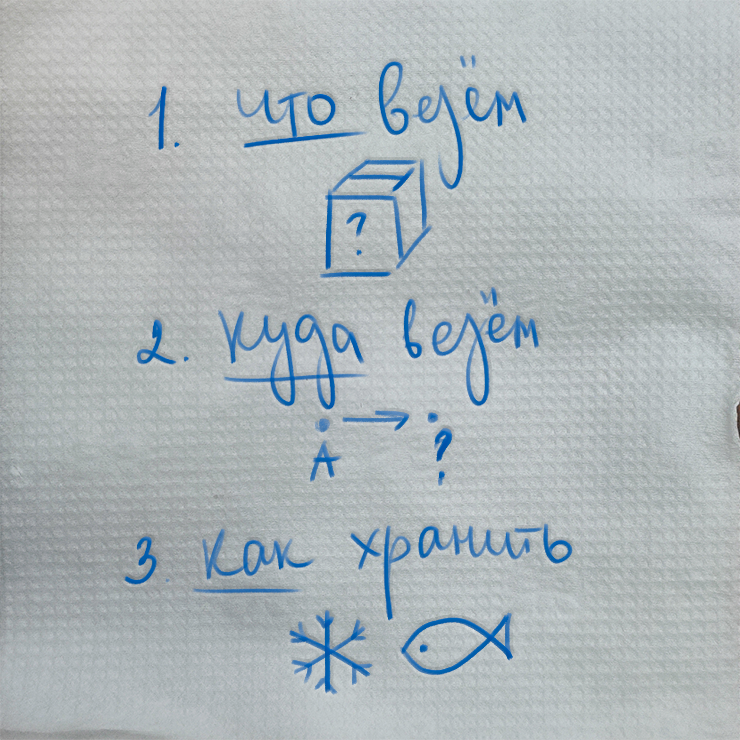 1. что везём
?
2. куда везём
А ?
3. как хранить